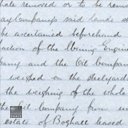 that removed or to be remo
ay Company's said lands w
be ascertained beforehand
action of the Mining Engin
pany and the Oil Compan
weighed on the steelyard
the weighing of the whole
the Oil Company from un
estate of Boghall leased